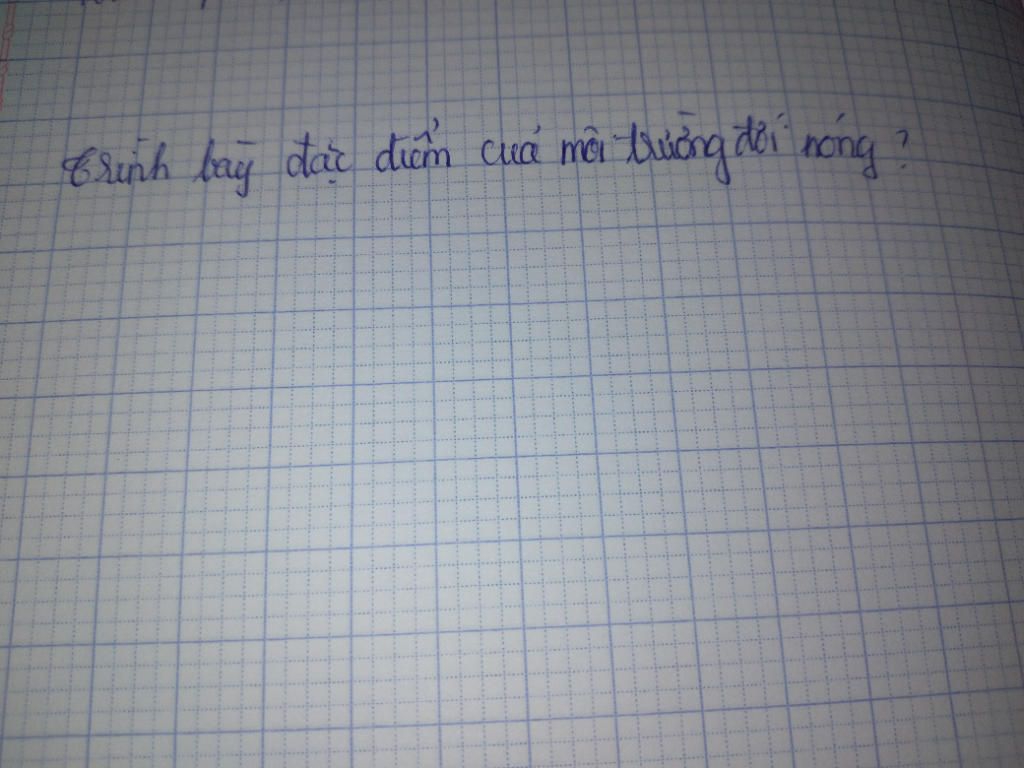 trình bày đặc điểm của môi trường đới nóng?